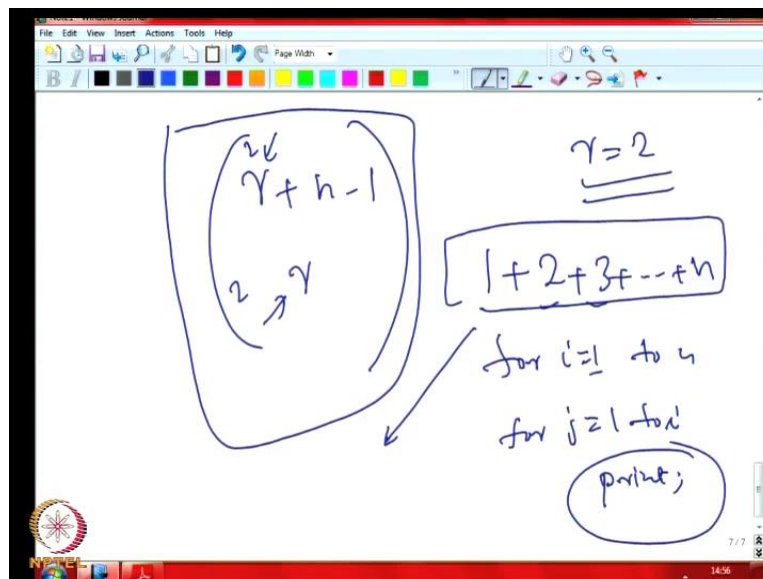 File Edit View Insert Actions Tools Help
Page Width
B I
2
r + n - 1
2 r
r = 2
1 + 2 + 3 + -- + n
for i=1 to n
for j=1 to i
print;
7 / 7
NPTEL
14:56